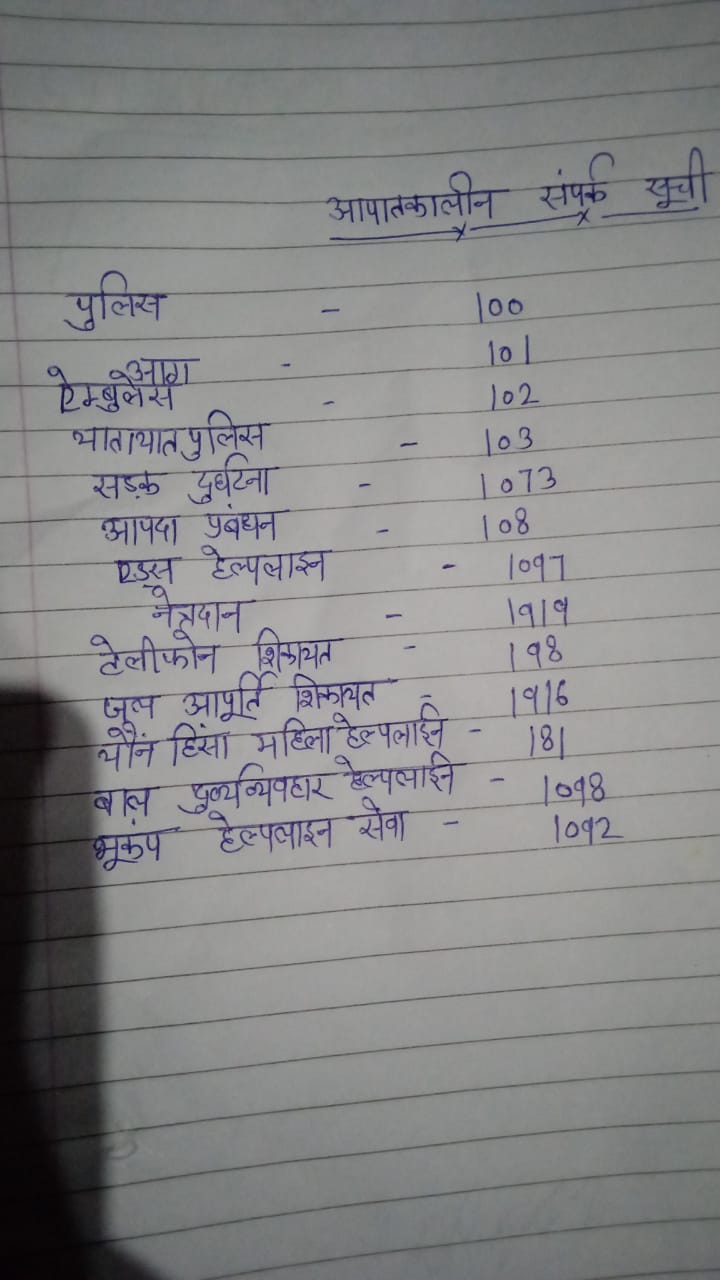 आपातकालीन संपर्क सूची
पुलिस - 100
आग - 101
ऐम्बुलेंस - 102
यातायात पुलिस - 103
सड़क दुर्घटना - 1073
आपदा प्रबंधन - 108
एड्स हेल्पलाइन - 1097
नेत्रदान - 1919
टेलीफोन शिकायत - 198
जल आपूर्ति शिकायत - 1916
यौन हिंसा महिला हेल्पलाईन - 181
बाल हेल्पलाईन - 1098
भूकंप हेल्पलाइन सेवा - 1092